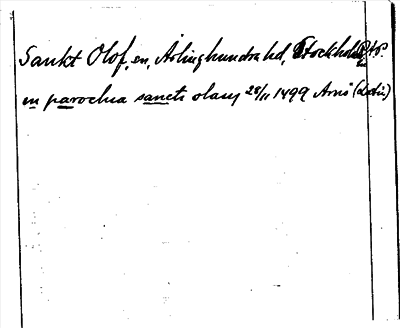 Sankt Olof, en, Ärlinghundra hd, Stockholms
in parochia sancti olavy 28/11 1499 Arnö (Latin)